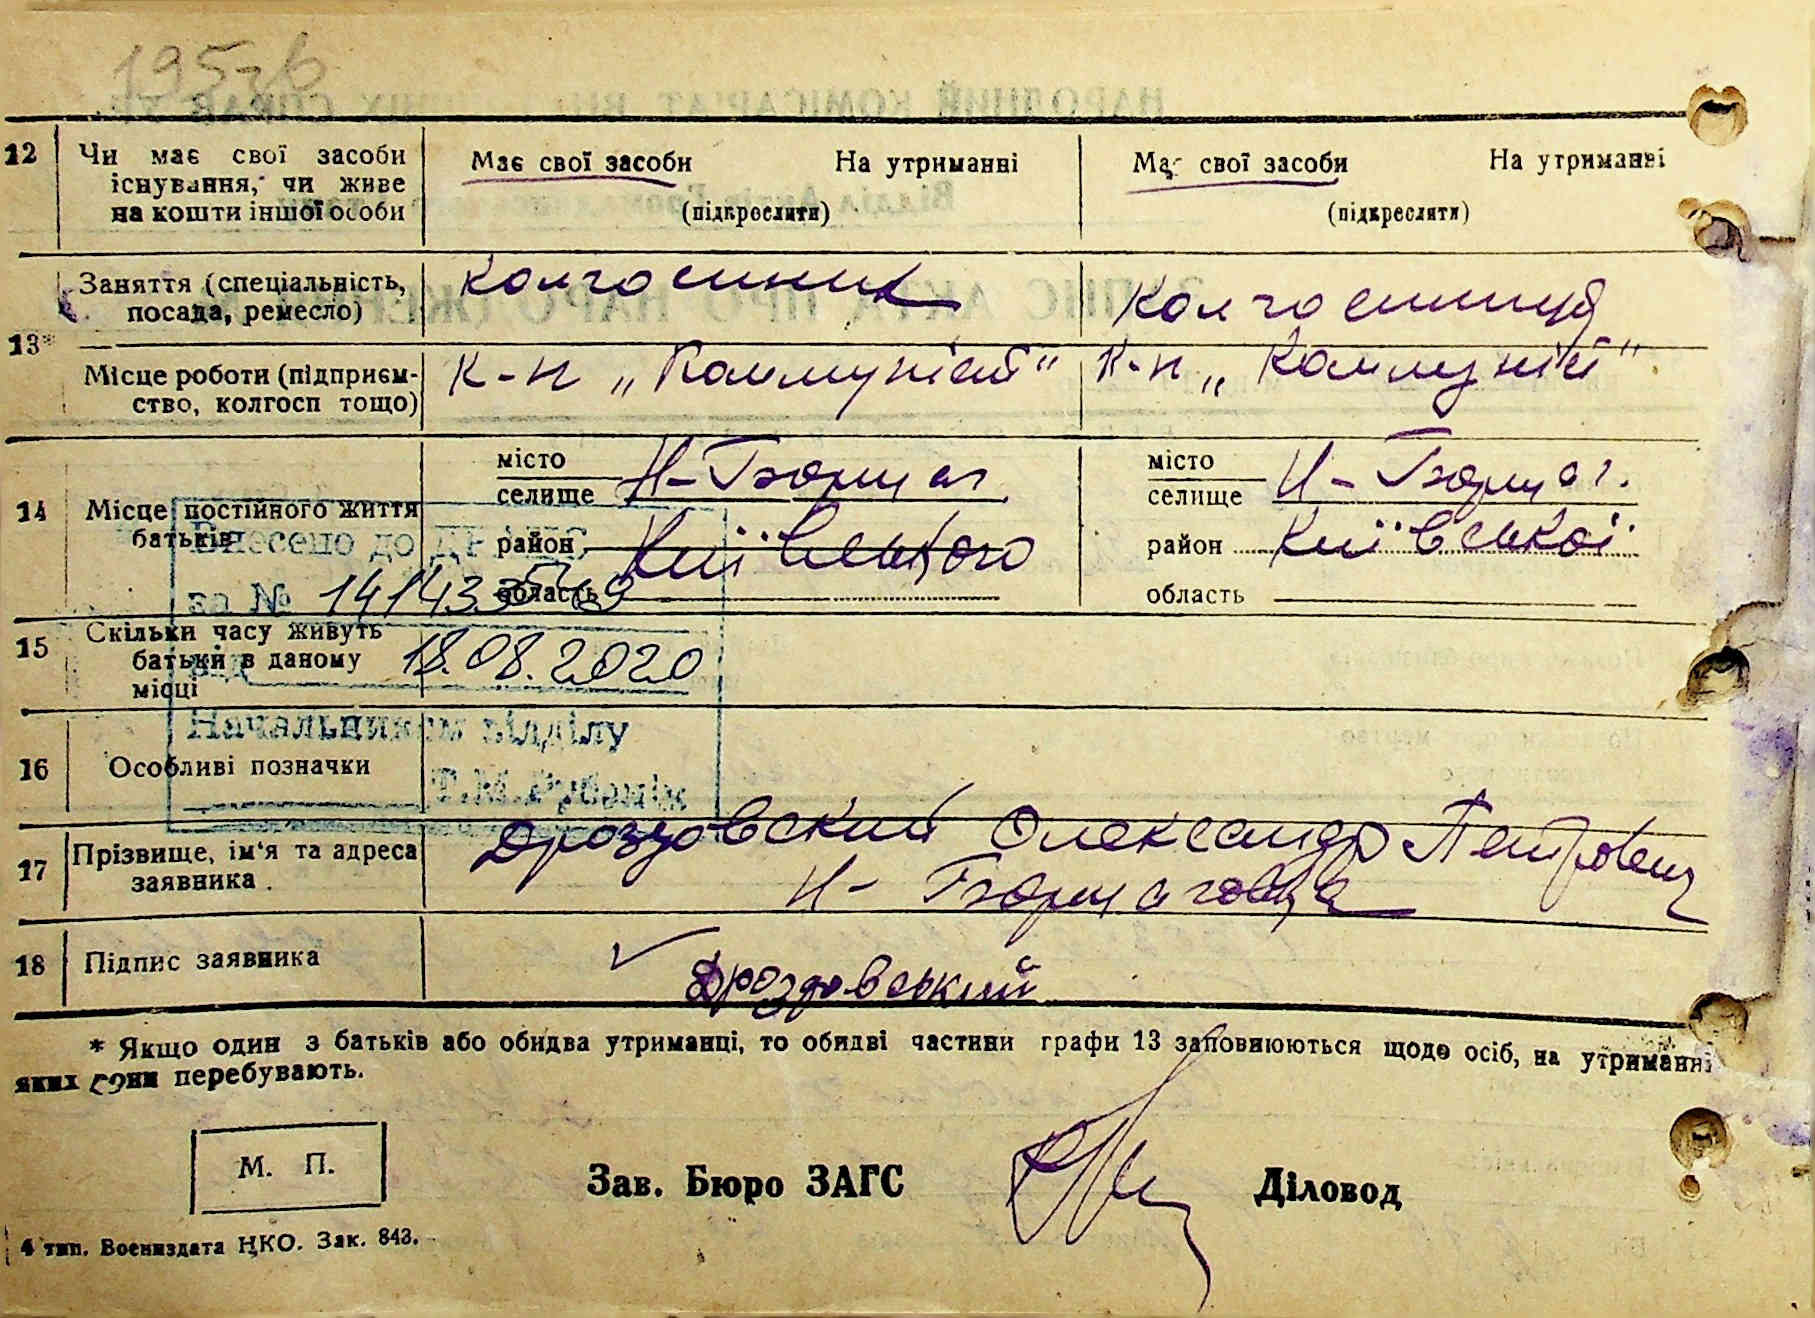 195зв
12 Чи має свої засоби існування, чи живе на кошти іншої особи
Має свої засоби На утриманні
(підкреслити)
Має свої засоби На утриманні
(підкреслити)
13* Заняття (спеціальність, посада, ремесло)
Колгоспник
Колгоспниця
Місце роботи (підприємство, колгосп тощо)
К-п „Коммуніст"
К-п „Коммуніст"
14 Місце постійного життя батьків
місто
селище Н-Борщаг
район Київського
область
місто
селище Н-Борщаг.
район Київської
область
Внесено до ДР
за № 1414335
15 Скільки часу живуть батьки в даному місці
від 18.08.2020
Начальником відділу
Т.М.
16 Особливі позначки
17 Прізвище, ім'я та адреса заявника.
Дроздовский Олександр Петрович
Н-Борщаговка
18 Підпис заявника
Дроздовський
* Якщо один з батьків або обидва утриманці, то обидві частини графи 13 заповнюються щодо осіб, на утриманні
яких вони перебувають.
М. П.
Зав. Бюро ЗАГС Діловод
4 тип. Воениздата НКО. Зак. 843.